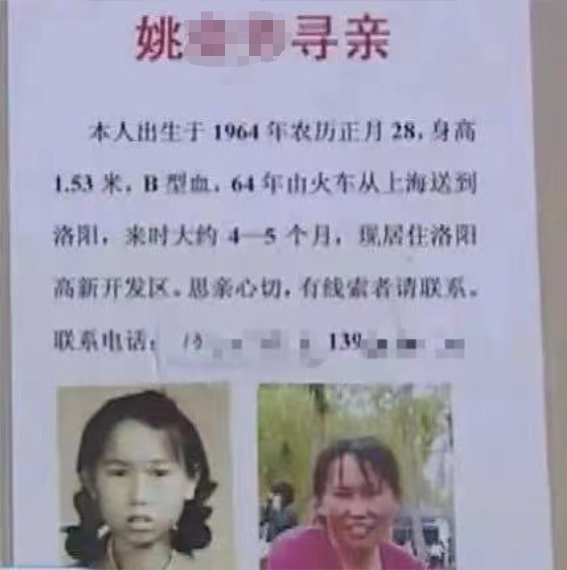 姚寻亲
本人出生于 1964 年农历正月 28, 身高
1.53 米, B 型血, 64 年由火车从上海送到
洛阳, 来时大约 4—5 个月, 现居住洛阳
高新开发区。思亲心切, 有线索者请联系。
联系电话: 139